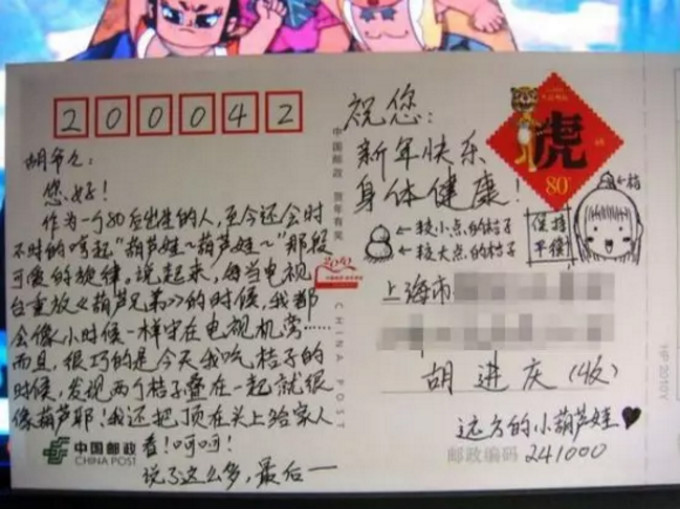 200042
胡爷爷：
您好！
作为一个80后出生的人，至今还会时
不时的哼起“葫芦娃~葫芦娃~”那段
可爱的旋律。说起来，每当电视
台重放《葫芦兄弟》的时候，我都
会像小时候一样守在电视机旁……
而且，很巧的是今天我吃桔子的
时候，发现两个桔子叠在一起就很
像葫芦耶！我还把顶在头上给家人
看！呵呵！
说了这么多，最后一
中国邮政
CHINA POST
中国邮政 贺年有奖
2010
CHINA POST
祝您：
新年快乐
身体健康！
虎
80
←桔
←较小点的桔子
←较大点的桔子
保持
平衡！
上海市
胡进庆（收）
远方的小葫芦娃
邮政编码 241000
HP 2010Y